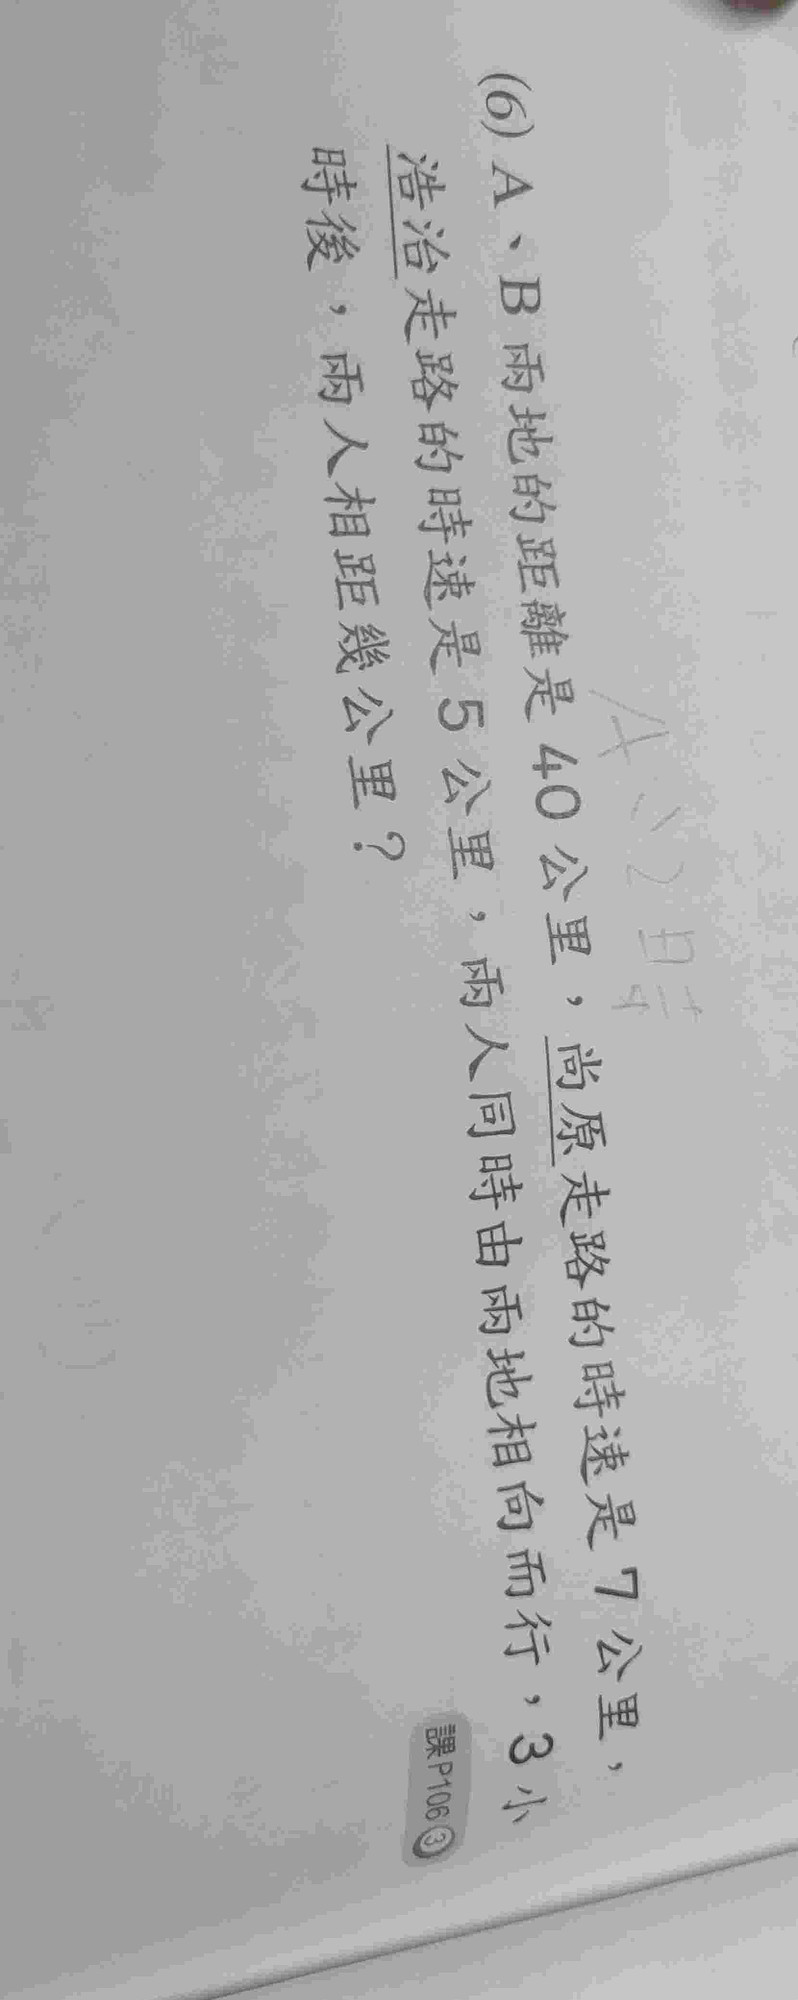 (6) A、B兩地的距離是40公里，尚原走路的時速是7公里，
浩治走路的時速是5公里，兩人同時由兩地相向而行，3小
時後，兩人相距幾公里？
課P106③